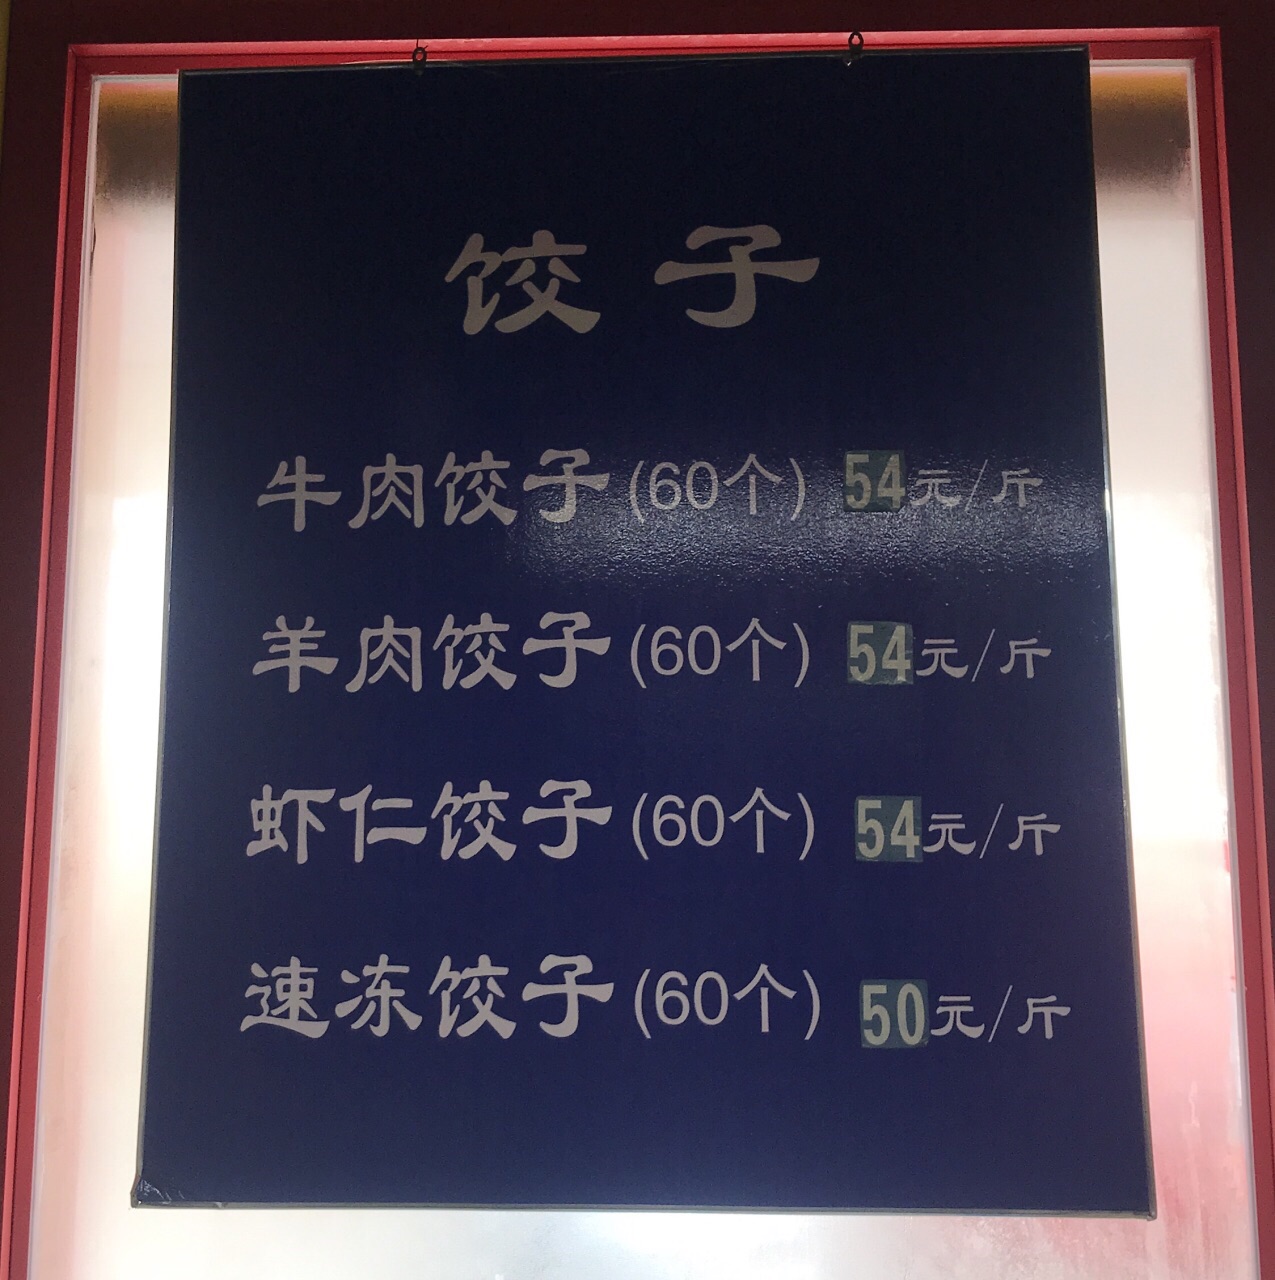 饺子
牛肉饺子(60个) 54元/斤
羊肉饺子(60个) 54元/斤
虾仁饺子(60个) 54元/斤
速冻饺子(60个) 50元/斤